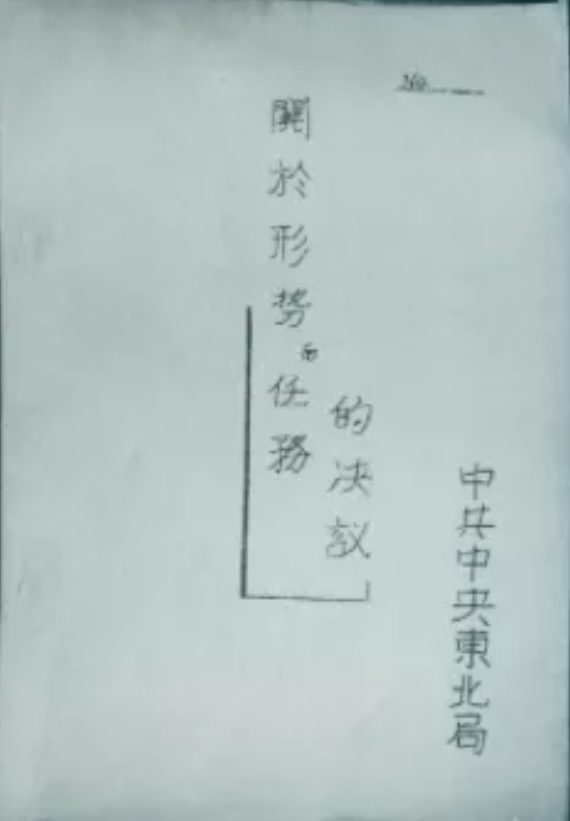 No.
關於形势任務
的决议
中共中央東北局